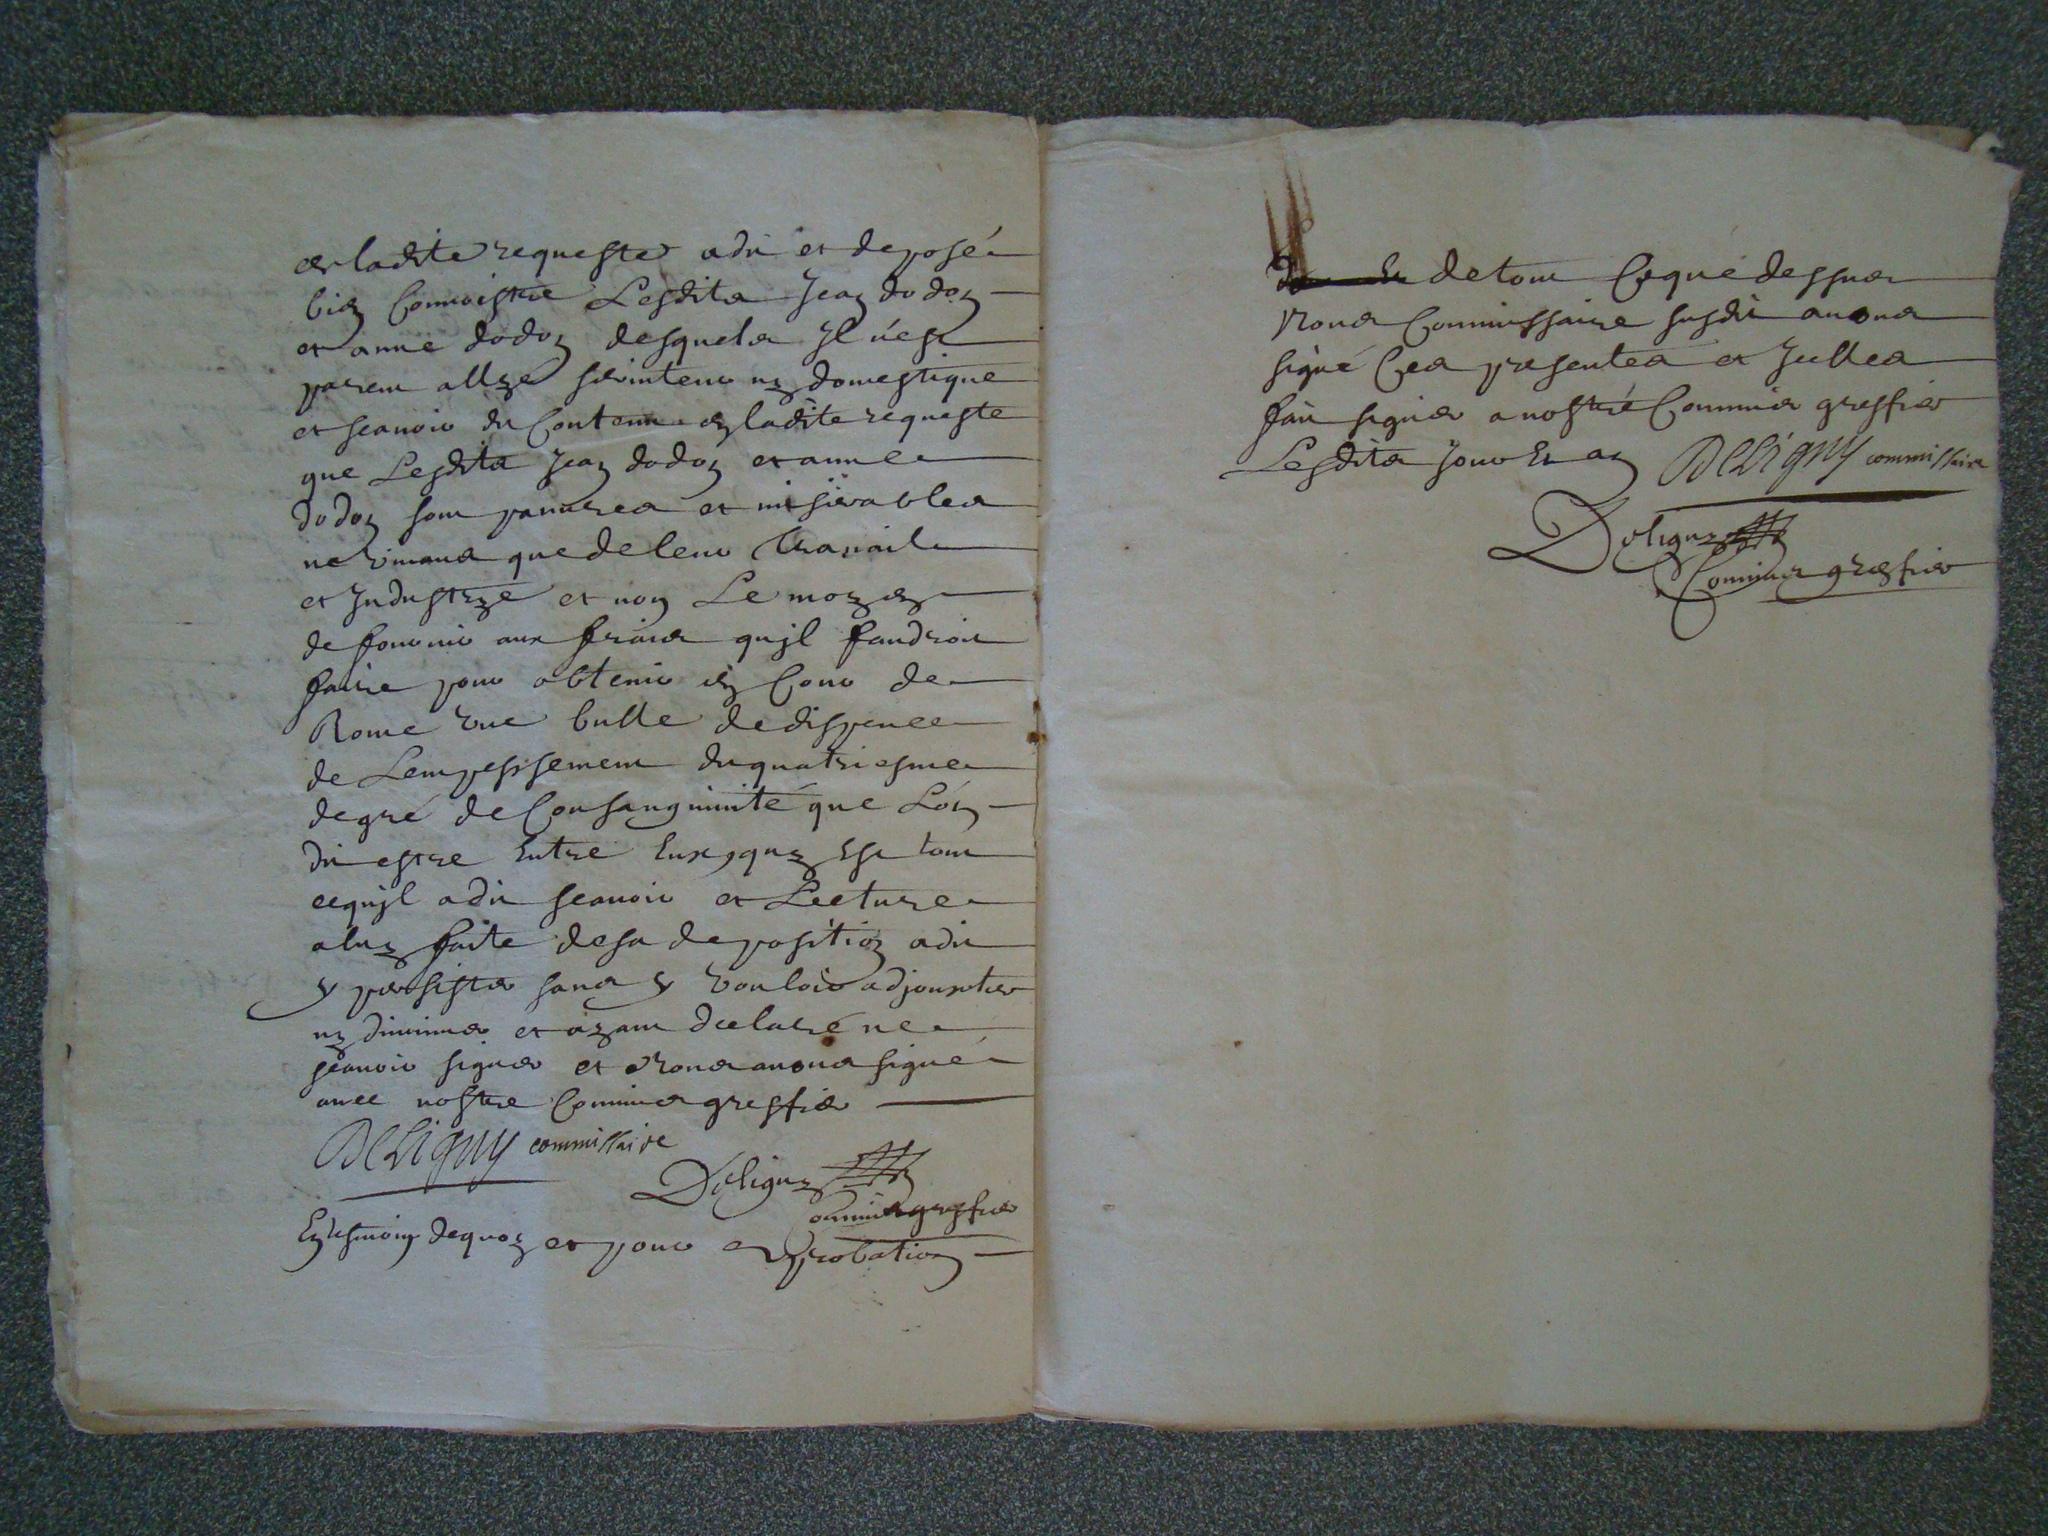 en ladite requeste a dit et deposé
bien Connoistre Lesdits Jean dodon
et anne dodon desquels Jl n'est
parent allyé serviteur ny domestique
et scavoir du Contenu en ladite requeste
que Lesdits Jean dodon et anne
dodon sont pauvres et miserables
ne vivans que de leur Travail
et Industrye et non Le moyen
de fournir aux frais qujl faudroit
faire pour obtenir en Cour de
Rome vne bulle de dispence
de Lempessement du quatriesme
degré de Consanguinité que Lón
dit estre Entre Eux, quy Est tout
ce qujl a dit scavoir et Lecture
a luy faite de sa deposition a dit
y persister sans y vouloir adjouxter
ny diminuer et ayant declaré ne
scavoir signer et Nous avons signé
avec nostre Commis greffier
DeLigny commissaire
Deligny
Commis greffier
En tesmoin de quoy et pour Approbation
de tout Ce que dessus
Nous Commissaire susdit avons
signé Ces presentes et Jcelles
fait signer a nostre Commis greffier
Lesdits Jour Et an DeLigny commissaire
Deligny
Commis greffier